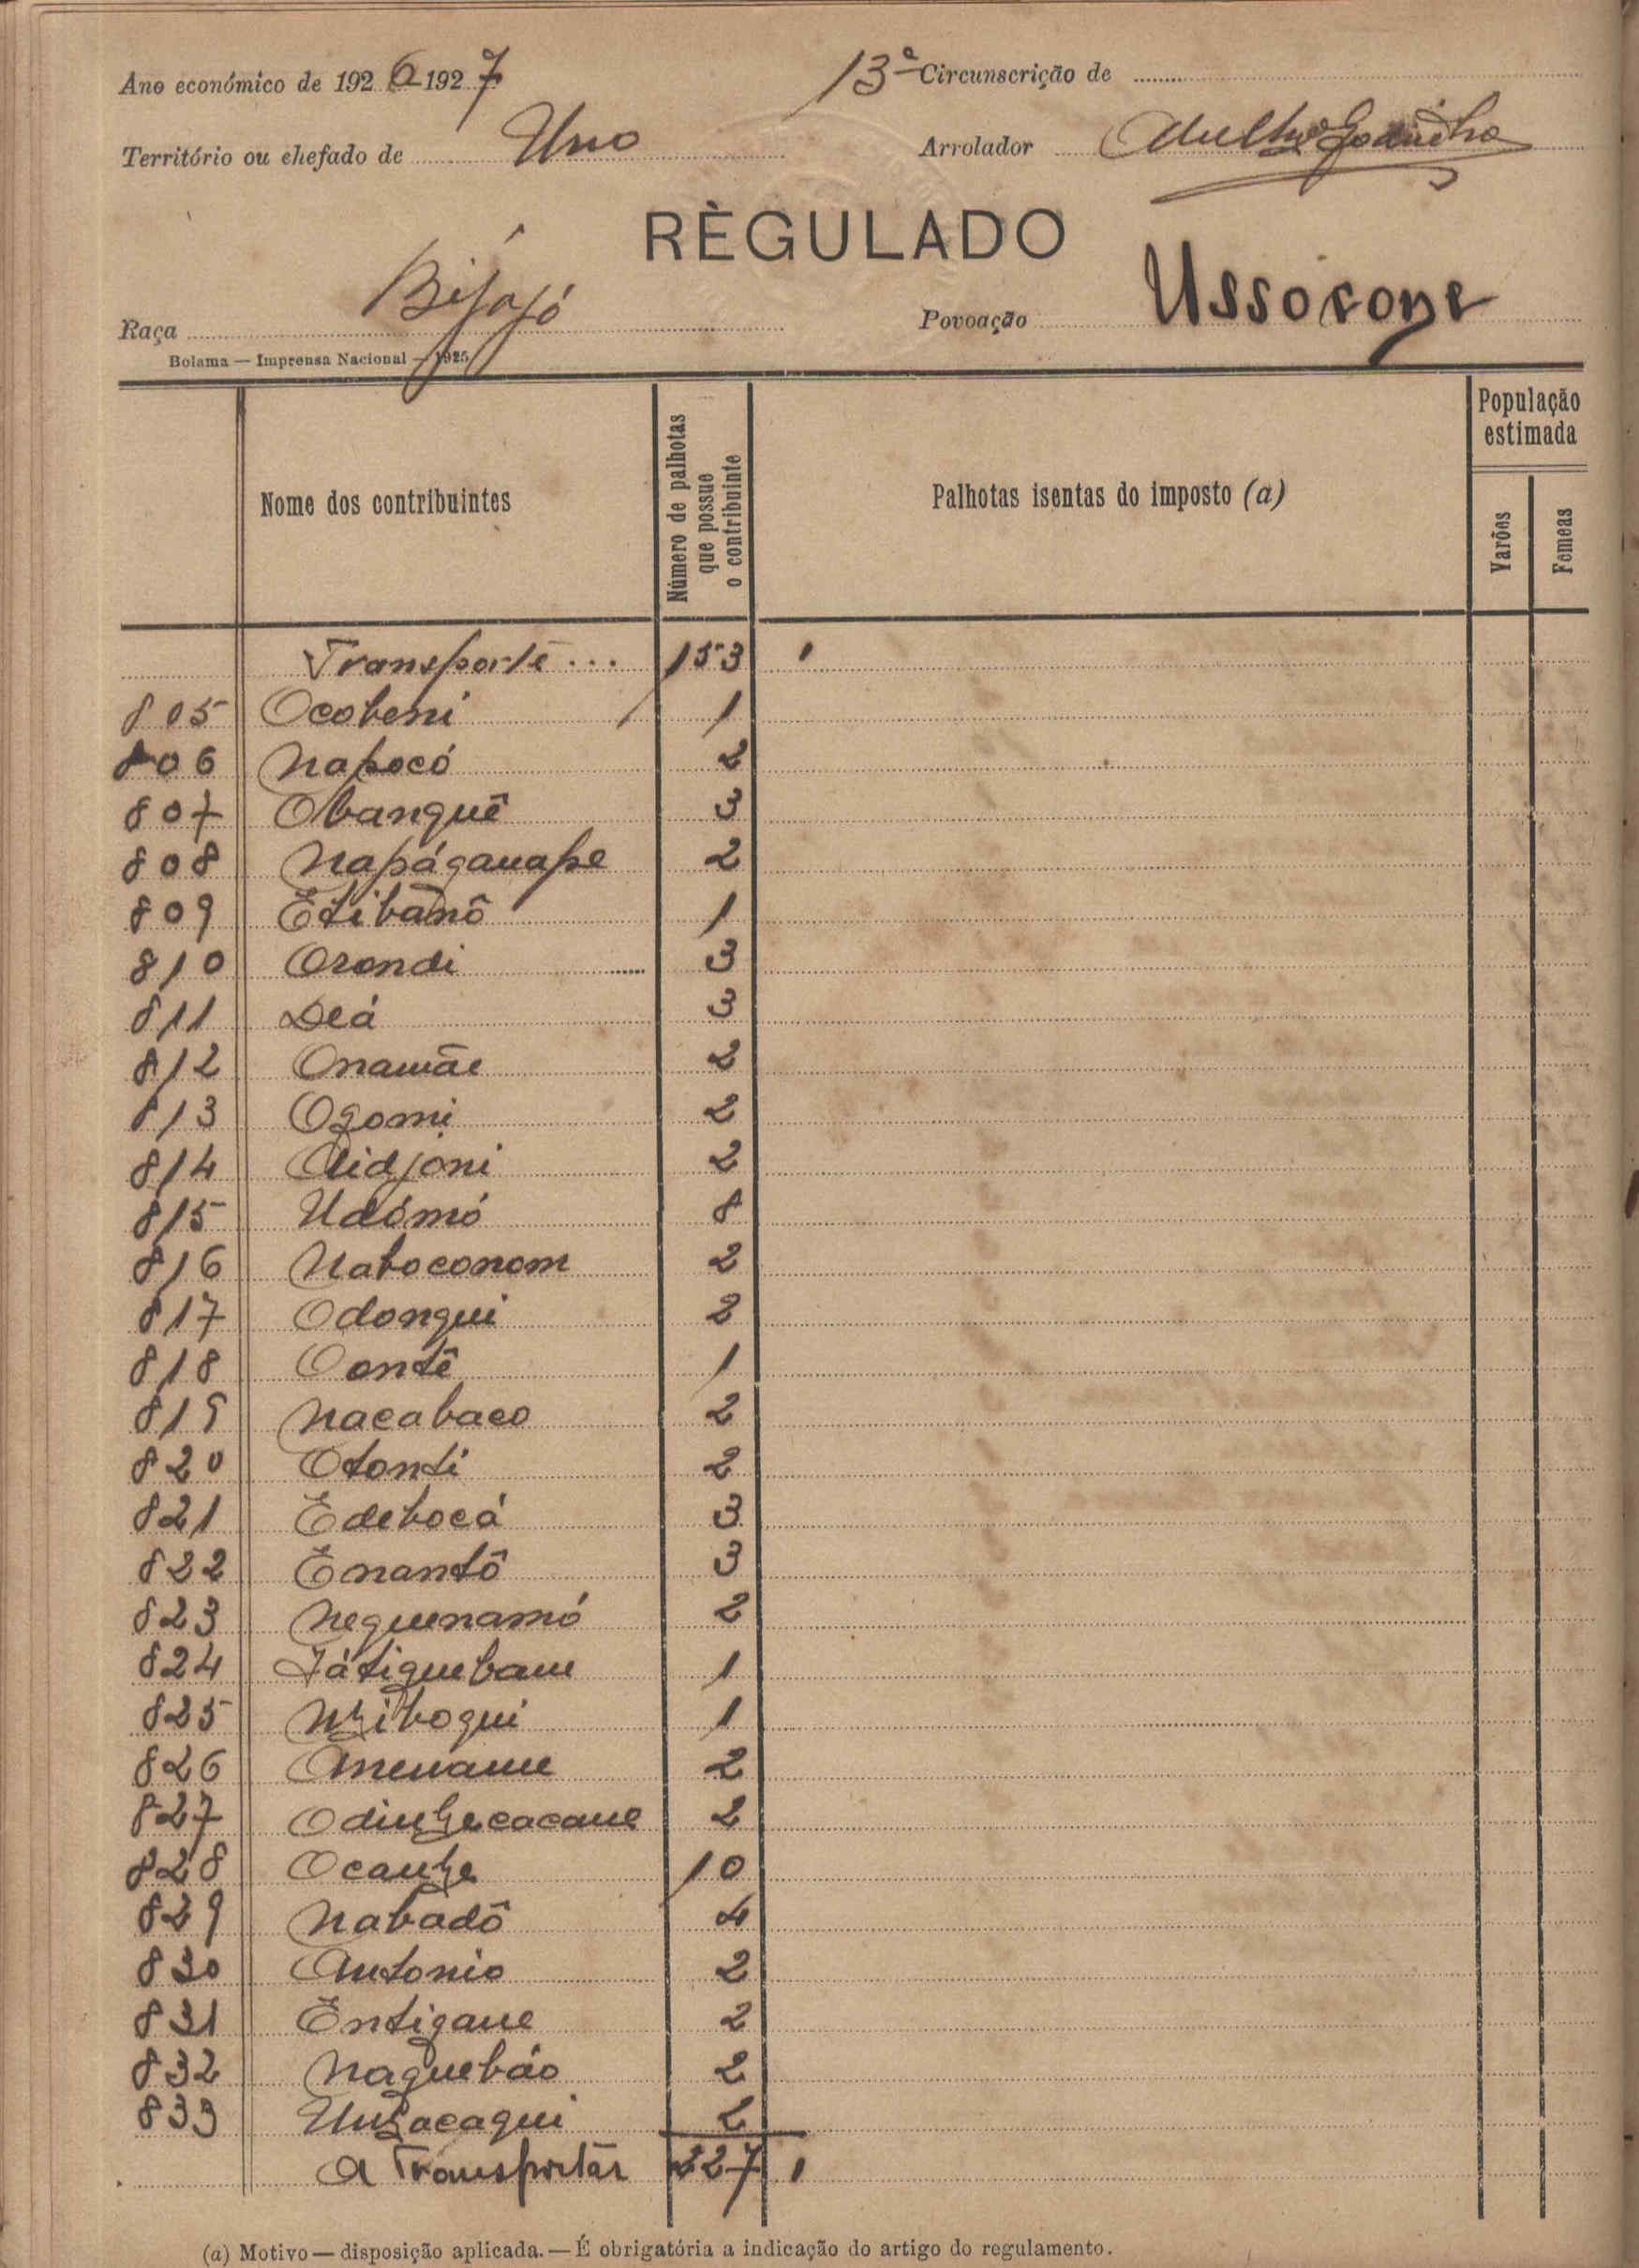 Ano económico de 1926-1927 13ª Circunscrição de
Território ou chefado de Uno Arrolador Godinho
RÈGULADO
Raça Bijajó Povoação Ussocone
Bolama — Imprensa Nacional — 1925
Nome dos contribuintes
Número de palhotas que possue o contribuinte
Palhotas isentas do imposto (a)
População estimada
Varões
Femeas
Transporte... 153
805 Ocobeni 1
806 Napocó 2
807 Obanguê 3
808 Napáganape 2
809 Etibanô 1
810 Orondi 3
811 Deá 3
812 Onamãe 2
813 Ogomi 2
814 Aidjoni 2
815 Udómó 8
816 Naboconom 2
817 Odongui 2
818 Oontê 1
819 Nacabaco 2
820 Otonti 2
821 Edebocá 3
822 Enantô 3
823 Neguenamó 2
824 Játiguebane 1
825 Nziboqui 1
826 Anename 2
827 Odinhecacane 2
828 Ocanhe 10
829 Nabadô 4
830 Antonio 2
831 Entigane 2
832 Naguebáo 2
833 2
A Transportar 227
(a) Motivo — disposição aplicada. — É obrigatória a indicação do artigo do regulamento.